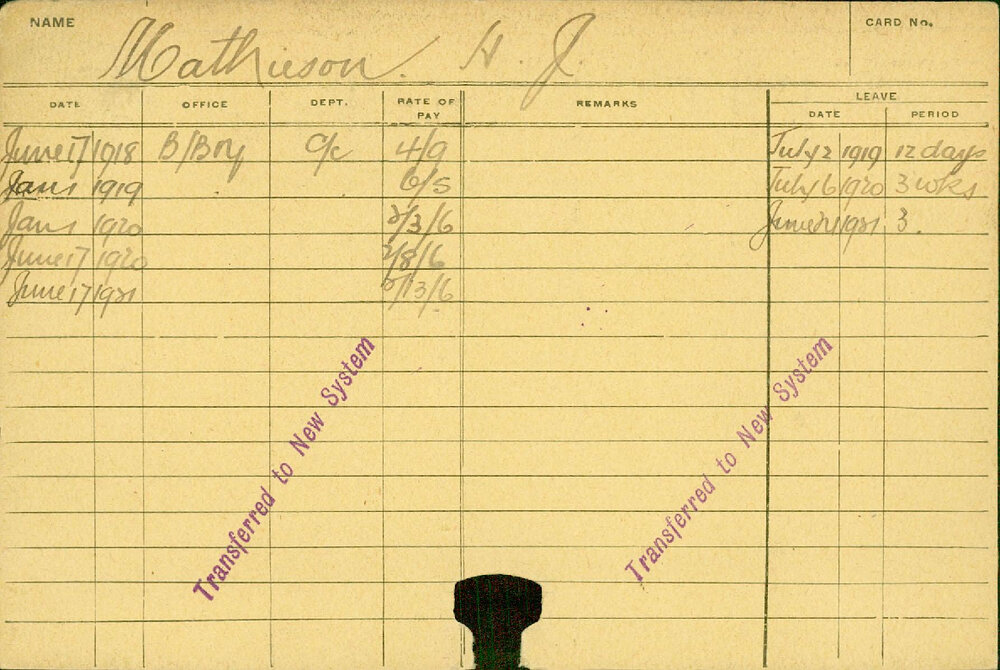 NAME Mathieson. H. J. CARD No.
DATE OFFICE DEPT. RATE OF PAY REMARKS LEAVE DATE PERIOD
June 17 1918 B/Boy O/c 4/9 July 2 1919 12 days
Jan 1 1919 6/5 July 6 1920 3 wks
Jan 1 1920 2/3/6 June 21 1921 3.
June 17 1920 2/8/6
June 17 1921 2/13/6
Transferred to New System
Transferred to New System